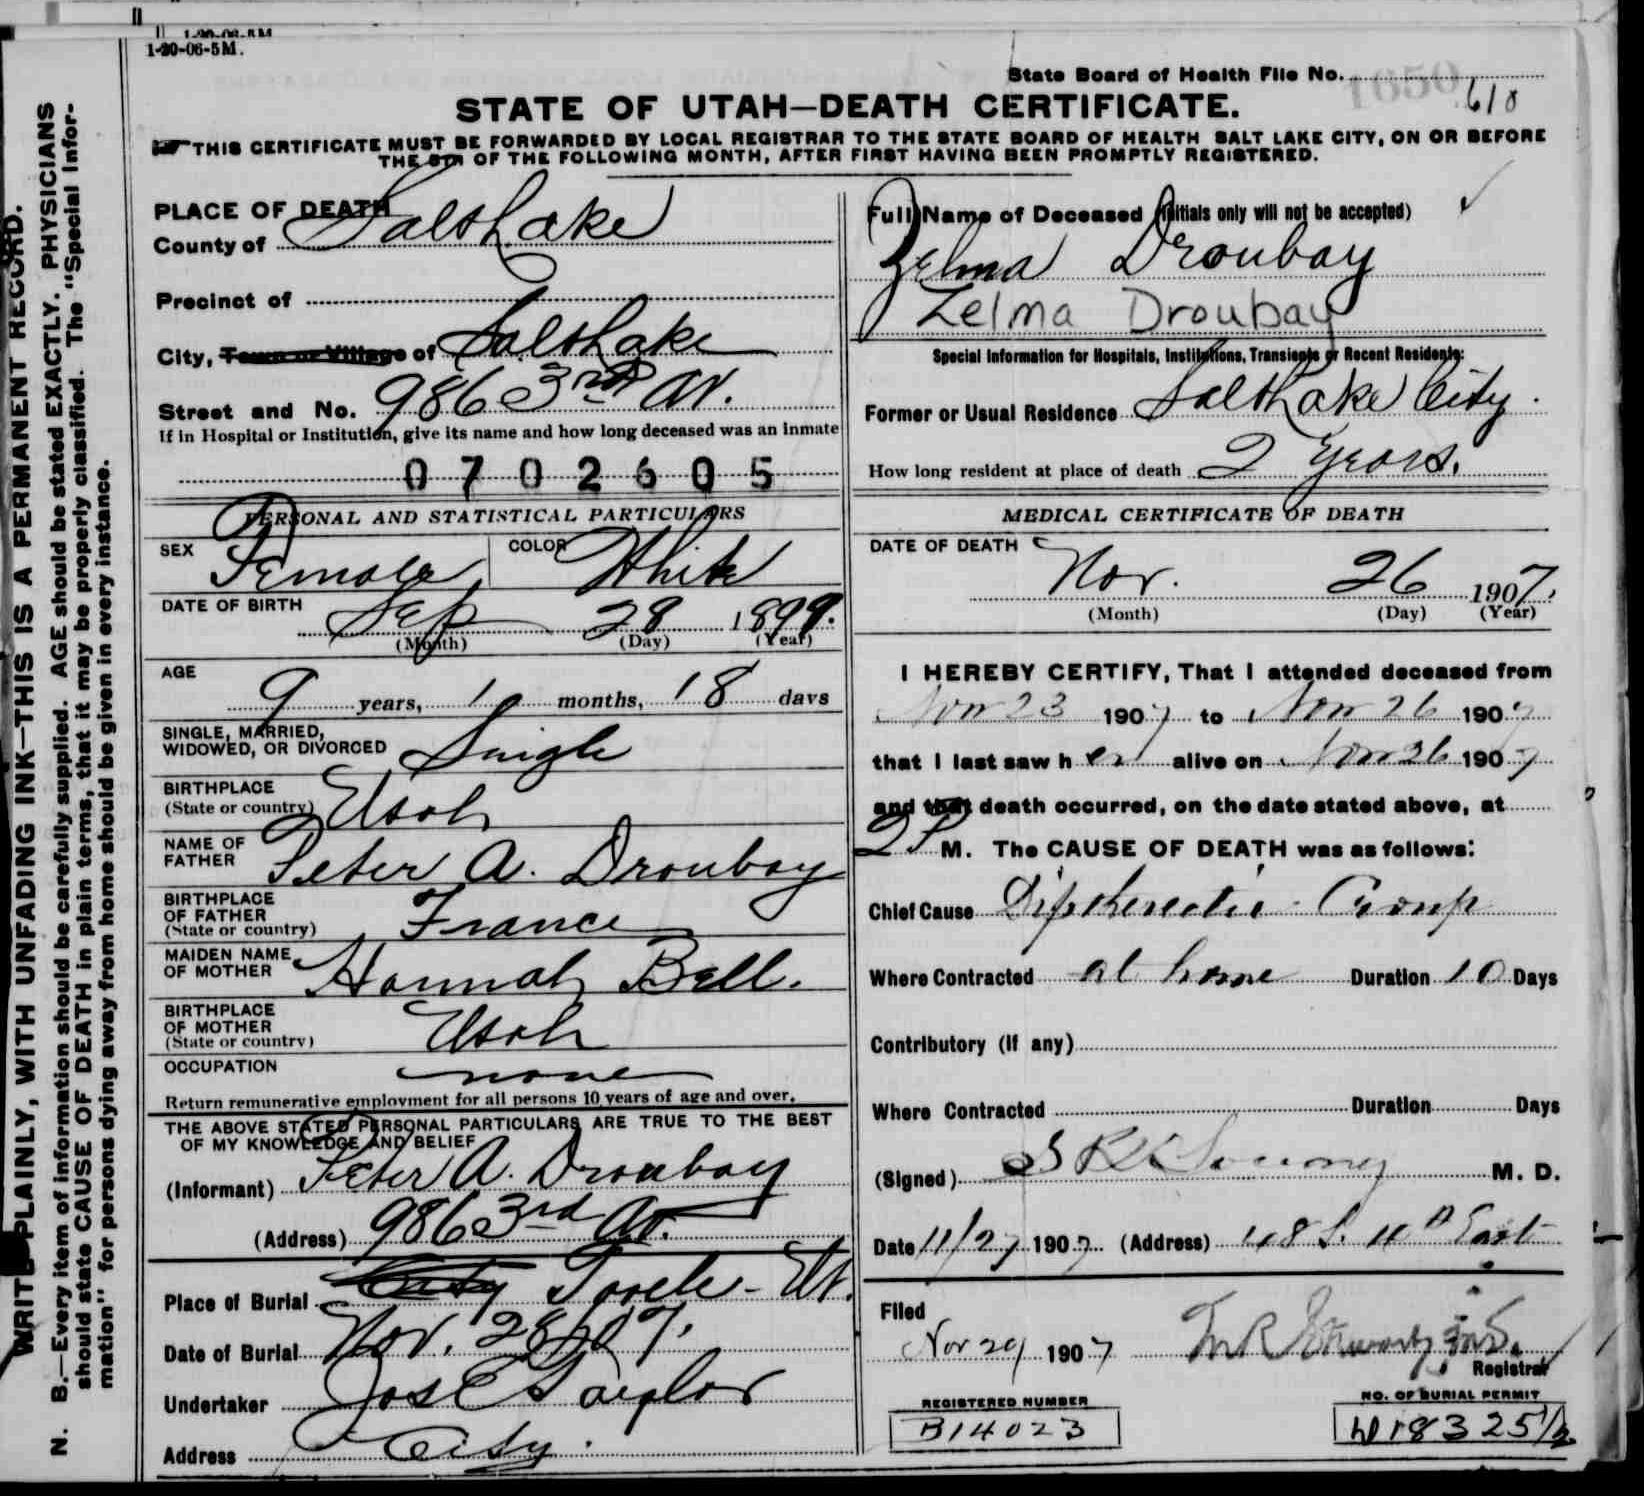 1-20-06-5M
1-20-06-5M.
State Board of Health File No. 1650 618
STATE OF UTAH—DEATH CERTIFICATE.
THIS CERTIFICATE MUST BE FORWARDED BY LOCAL REGISTRAR TO THE STATE BOARD OF HEALTH SALT LAKE CITY, ON OR BEFORE
THE 5TH OF THE FOLLOWING MONTH, AFTER FIRST HAVING BEEN PROMPTLY REGISTERED.
PLACE OF DEATH
County of Salt Lake
Precinct of
City, Town or Village of Salt Lake
Street and No. 986 3rd Av.
If in Hospital or Institution, give its name and how long deceased was an inmate
0702605
PERSONAL AND STATISTICAL PARTICULARS
SEX Female COLOR White
DATE OF BIRTH Sep 28 189
(Month) (Day) (Year)
AGE 9 years, 1 months, 18 days
SINGLE, MARRIED,
WIDOWED, OR DIVORCED Single
BIRTHPLACE
(State or country) Utah
NAME OF
FATHER Peter A. Droubay
BIRTHPLACE
OF FATHER
(State or country) France
MAIDEN NAME
OF MOTHER Hannah Bell.
BIRTHPLACE
OF MOTHER
(State or country) Utah
OCCUPATION none
Return remunerative employment for all persons 10 years of age and over.
THE ABOVE STATED PERSONAL PARTICULARS ARE TRUE TO THE BEST
OF MY KNOWLEDGE AND BELIEF
(Informant) Peter A. Droubay
(Address) 986 3rd Av.
Place of Burial City Tooele - Ut.
Date of Burial Nov. 28/07.
Undertaker Jos E Taylor
Address City.
Full Name of Deceased (Initials only will not be accepted)
Zelma Droubay
Zelma Droubay
Special Information for Hospitals, Institutions, Transients or Recent Residents:
Former or Usual Residence Salt Lake City.
How long resident at place of death 2 Years.
MEDICAL CERTIFICATE OF DEATH
DATE OF DEATH
Nov. 26 1907.
(Month) (Day) (Year)
I HEREBY CERTIFY, That I attended deceased from
Nov 23 1907 to Nov 26 1907
that I last saw her alive on Nov 26 1907
and that death occurred, on the date stated above, at
2 P M. The CAUSE OF DEATH was as follows:
Chief Cause Diphtheretic Croup
Where Contracted at home Duration 10 Days
Contributory (If any)
Where Contracted Duration Days
(Signed) M. D.
Date 11/27 1907 (Address) 48 S. 11th East
Filed
Nov 29 1907
Registrar
REGISTERED NUMBER
B14023
NO. OF BURIAL PERMIT
W18325 1/2
WRITE PLAINLY, WITH UNFADING INK—THIS IS A PERMANENT RECORD.
N. B.—Every item of information should be carefully supplied. AGE should be stated EXACTLY. PHYSICIANS
should state CAUSE OF DEATH in plain terms, that it may be properly classified. The "Special Infor-
mation" for persons dying away from home should be given in every instance.